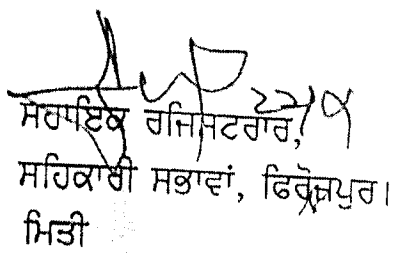 ਸਹਾਇਕ ਰਜਿਸਟਰਾਰ,
ਸਹਿਕਾਰੀ ਸਭਾਵਾਂ, ਫਿਰੋਜ਼ਪੁਰ।
ਮਿਤੀ